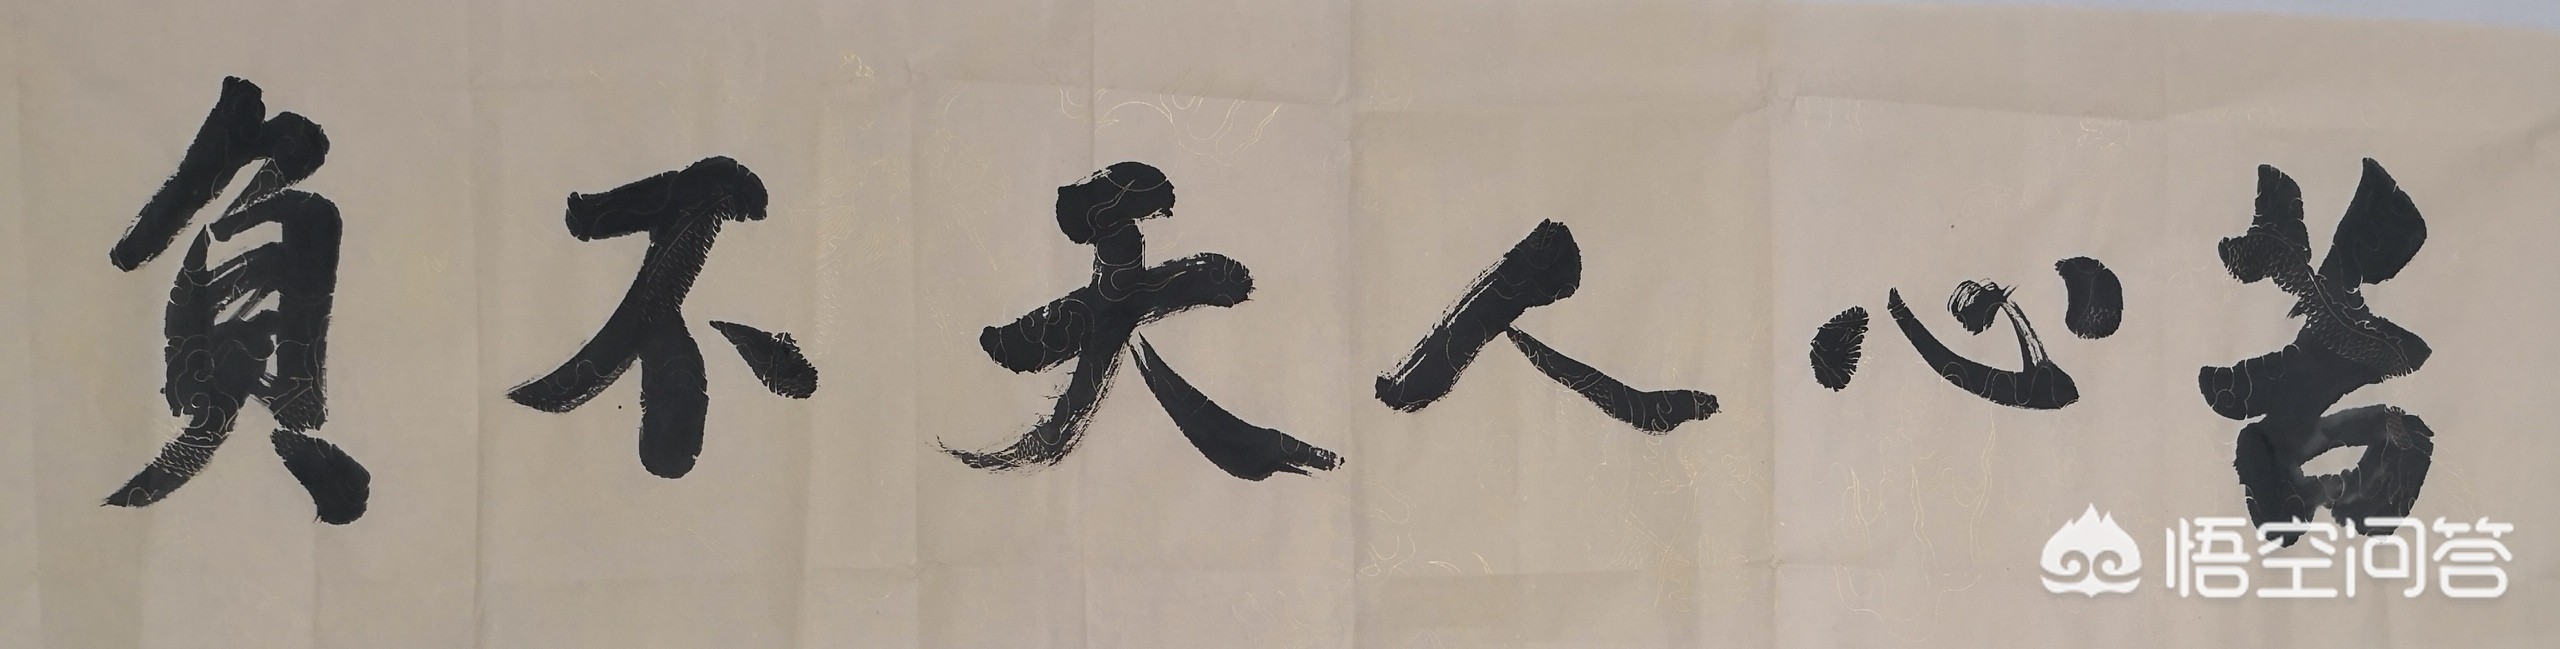 苦心人天不負
悟空问答